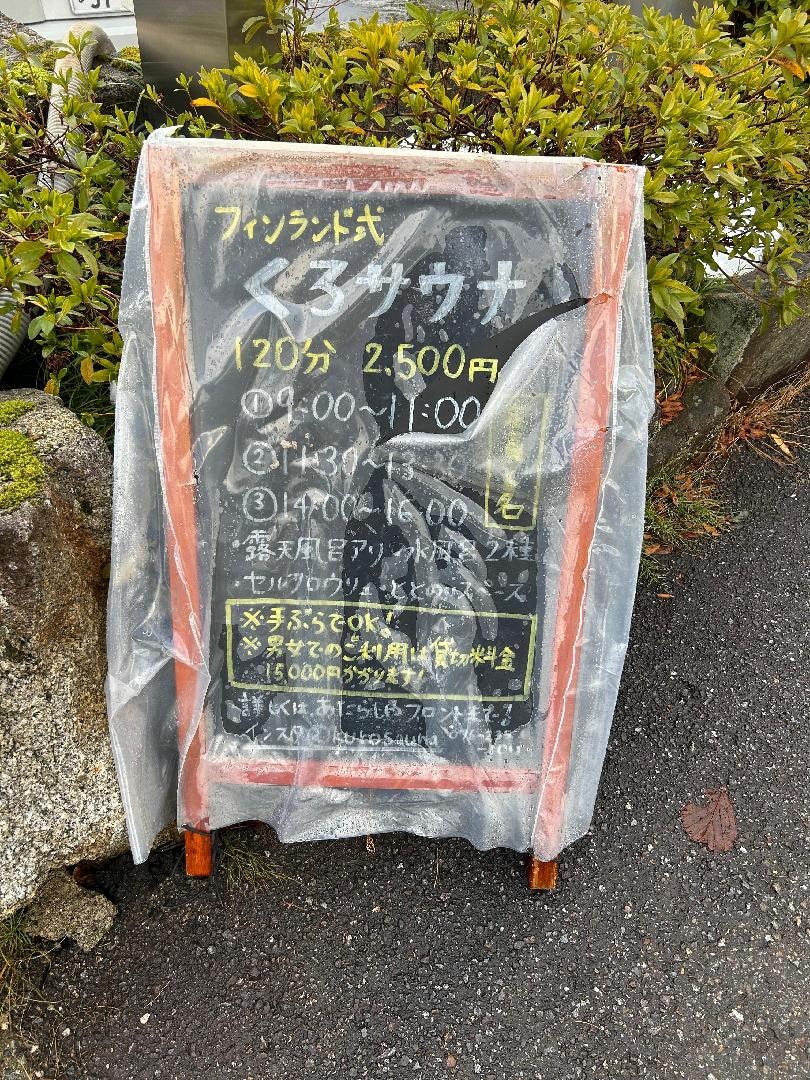 フィンランド式
くろサウナ
120分 2,500円
①9:00〜11:00
②11:30〜13
③14:00〜16:00
名
・露天風呂アリ 水風呂2種
・セルフロウリュ
※手ぶらでOK!
※男女でのご利用は貸切料金
15,000円かかります!
詳しくは、あたらしやフロントまで!
インスタ@kurosauna